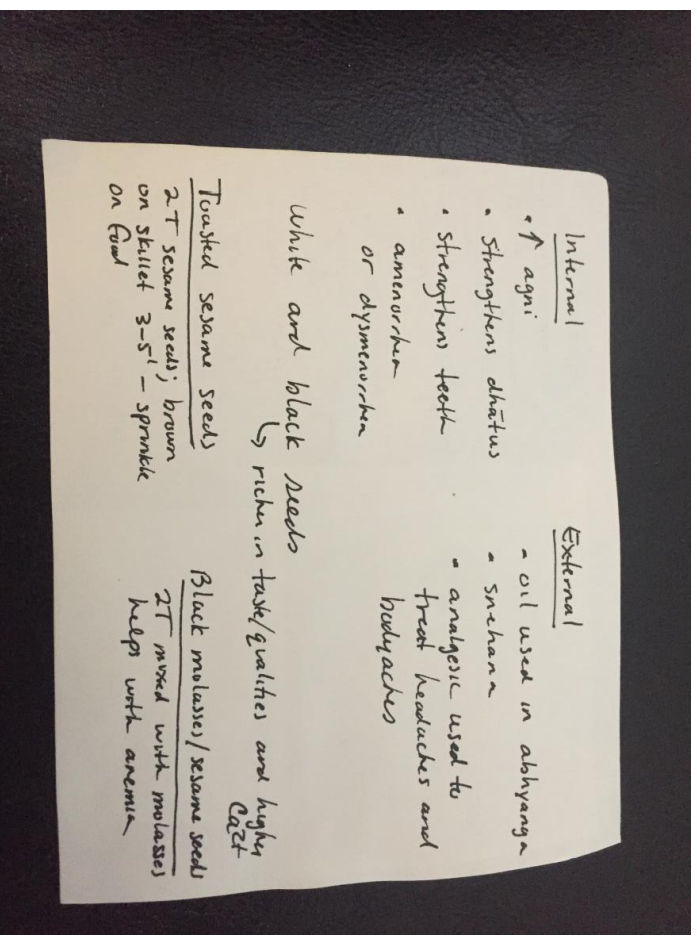 Internal
• ↑ agni
• strengthens dhātus
• strengthens teeth
• amenorrhea
or dysmenorrhea
External
• oil used in abhyanga
• snehana
• analgesic used to
treat headaches and
bodyaches
White and black seeds
↳ richer in taste/qualities and higher
Ca2+
Toasted sesame seeds
2T sesame seeds; brown
on skillet 3-5' - sprinkle
on food
Black molasses/sesame seeds
2T mixed with molasses
helps with anemia